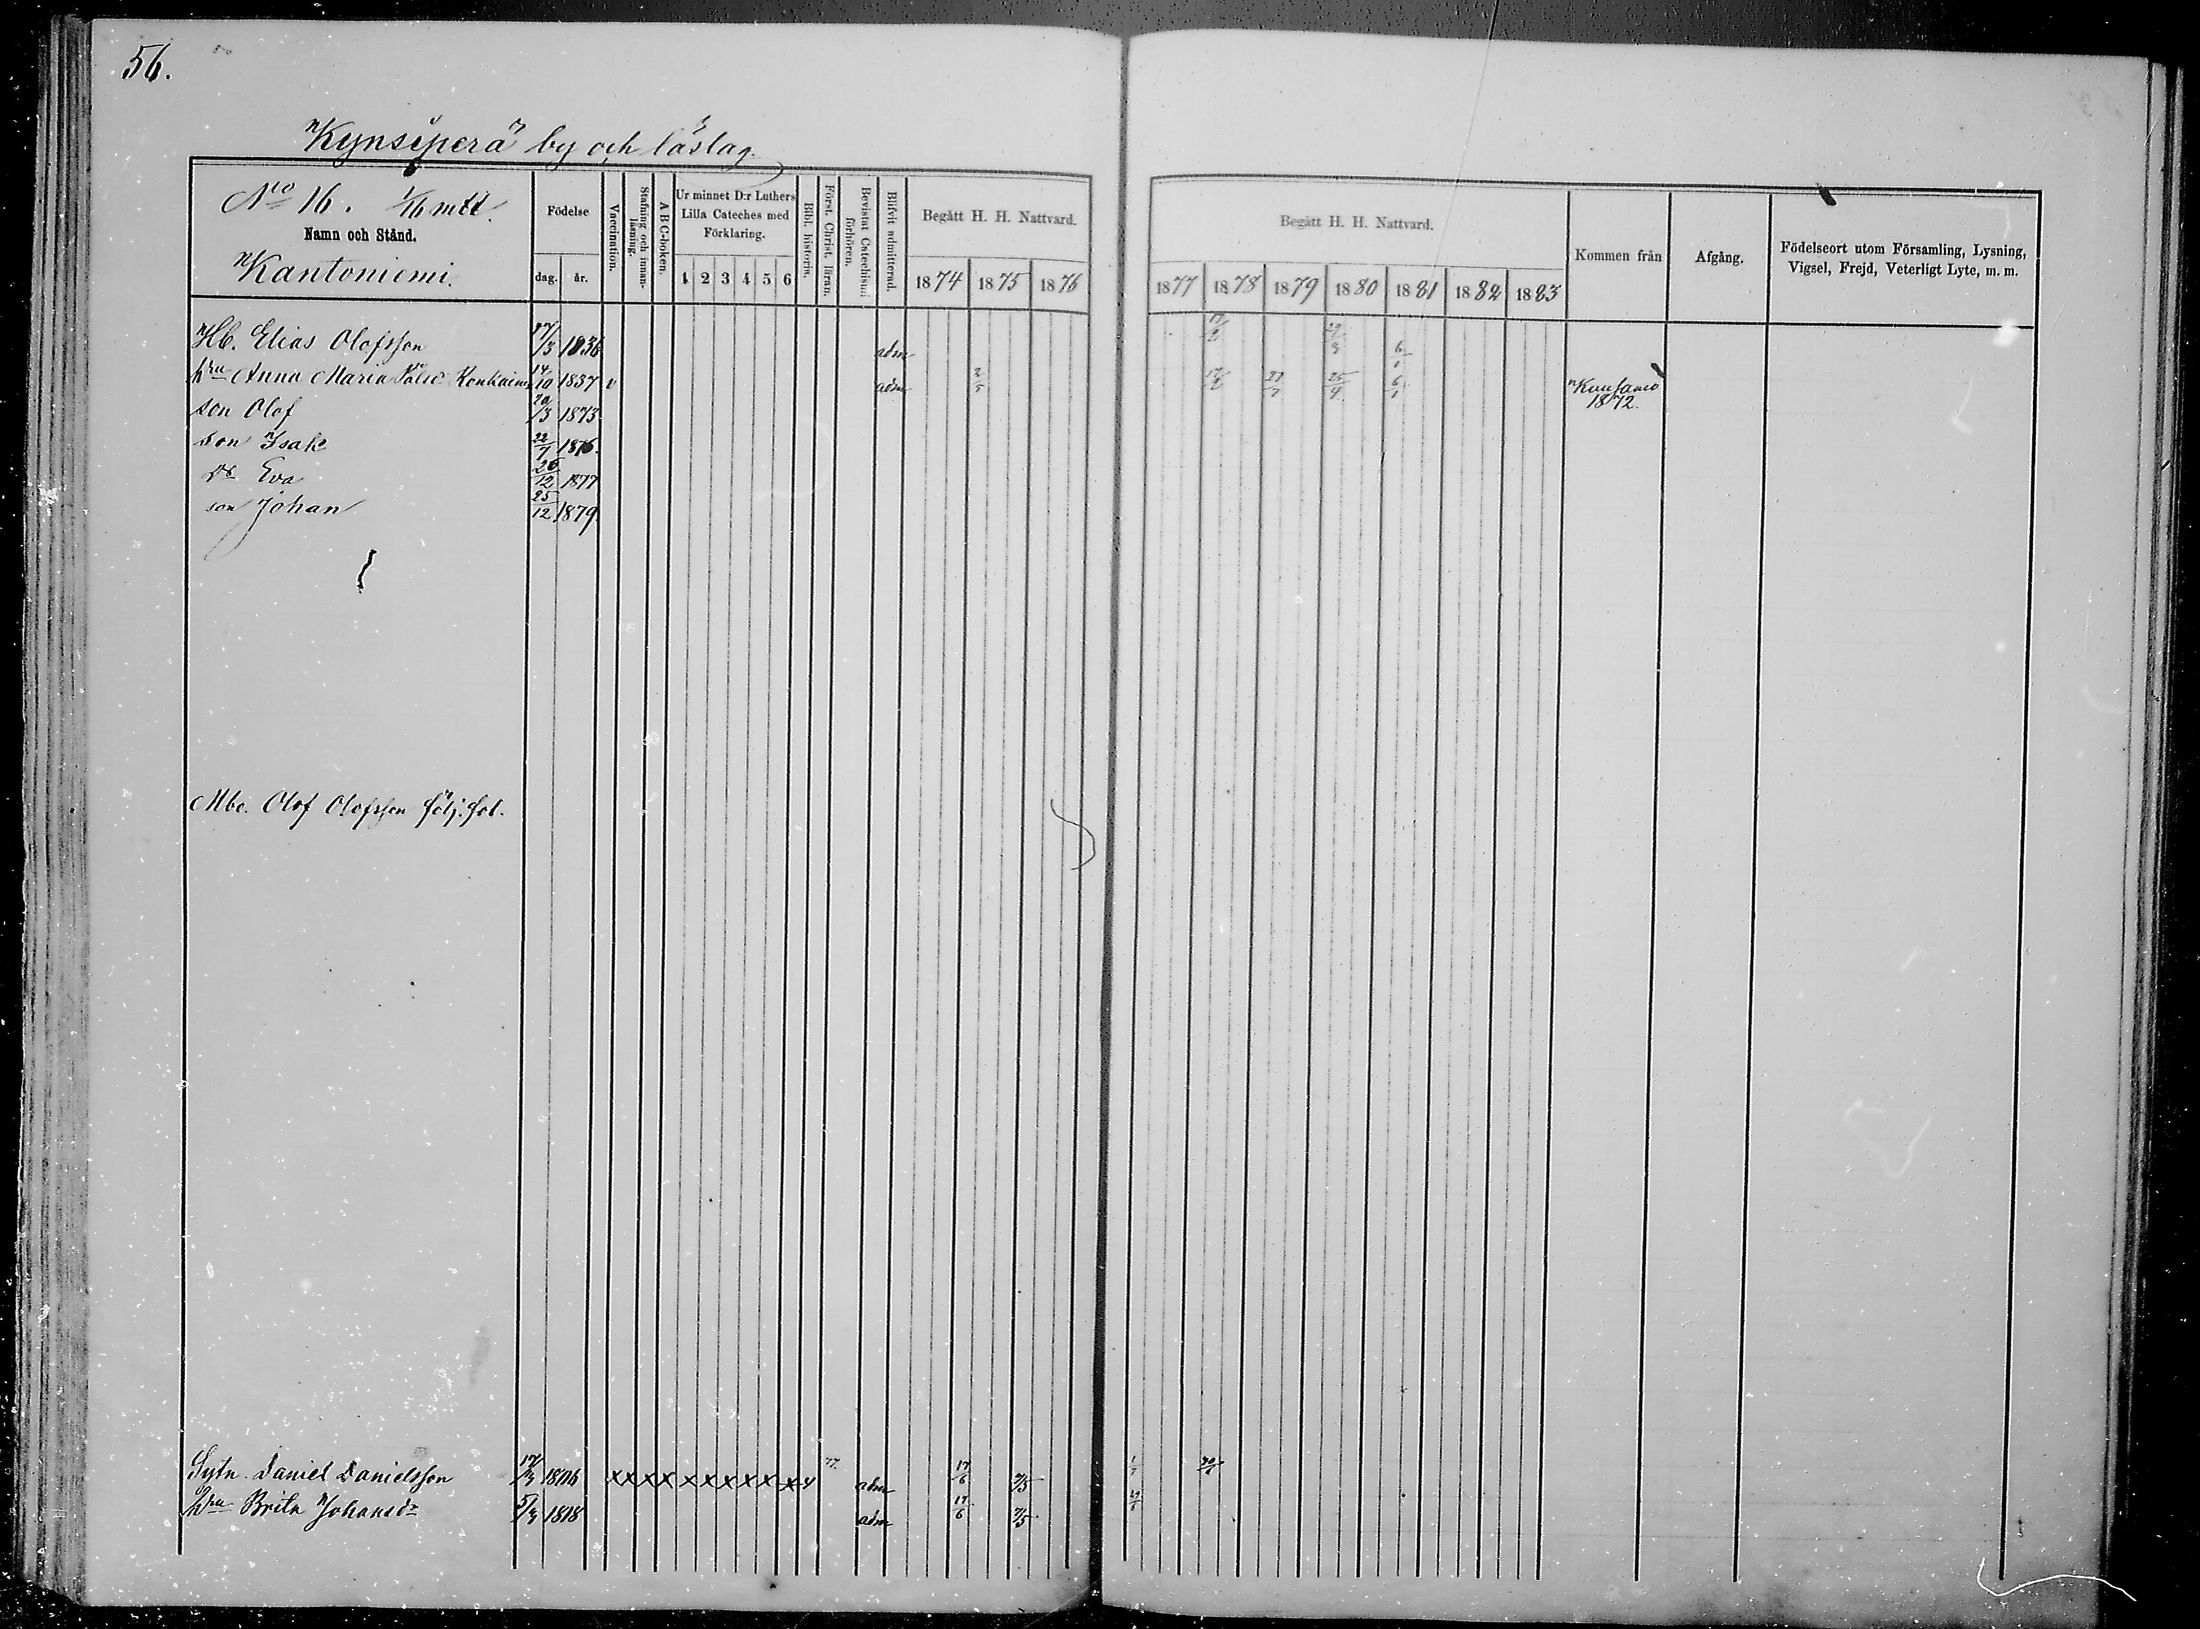 56.
Kynsiperä by och läslag.
No 16. 1/16 mtl.
Namn och Stånd.
Kantoniemi.
Födelse
dag. år.
Vaccination.
Stafning och innanläsning.
A B C-boken.
Ur minnet D:r Luthers
Lilla Cateches med
Förklaring.
1 2 3 4 5 6
Bibl. historia.
Först. Christ. läran.
Bevistat Catechismi förhören.
Blifvit admitterad.
Begått H. H. Nattvard.
1874 1875 1876
Begått H. H. Nattvard.
1877 1878 1879 1880 1881 1882 1883
Kommen från
Afgång.
Födelseort utom Församling, Lysning,
Vigsel, Frejd, Veterligt Lyte, m. m.
Hb. Elias Olofsson 1836 adm 6/1
hru Anna Maria 14/10 1837 v adm 2/5 25/4 6/1 Kuusamo
1872.
son Olof 20/3 1873
son Isak 22/7 1876.
Dr Eva 26/12 1877
son Johan 25/12 1879
Mbo. Olof Olofsson följ. fol.
Sytn. Daniel Danielsson 17/3 1806 x x x x x x x x x x 4 77. adm 17/6 7/5
hru Brita Johansdr 5/3 1808 adm 17/6 7/5